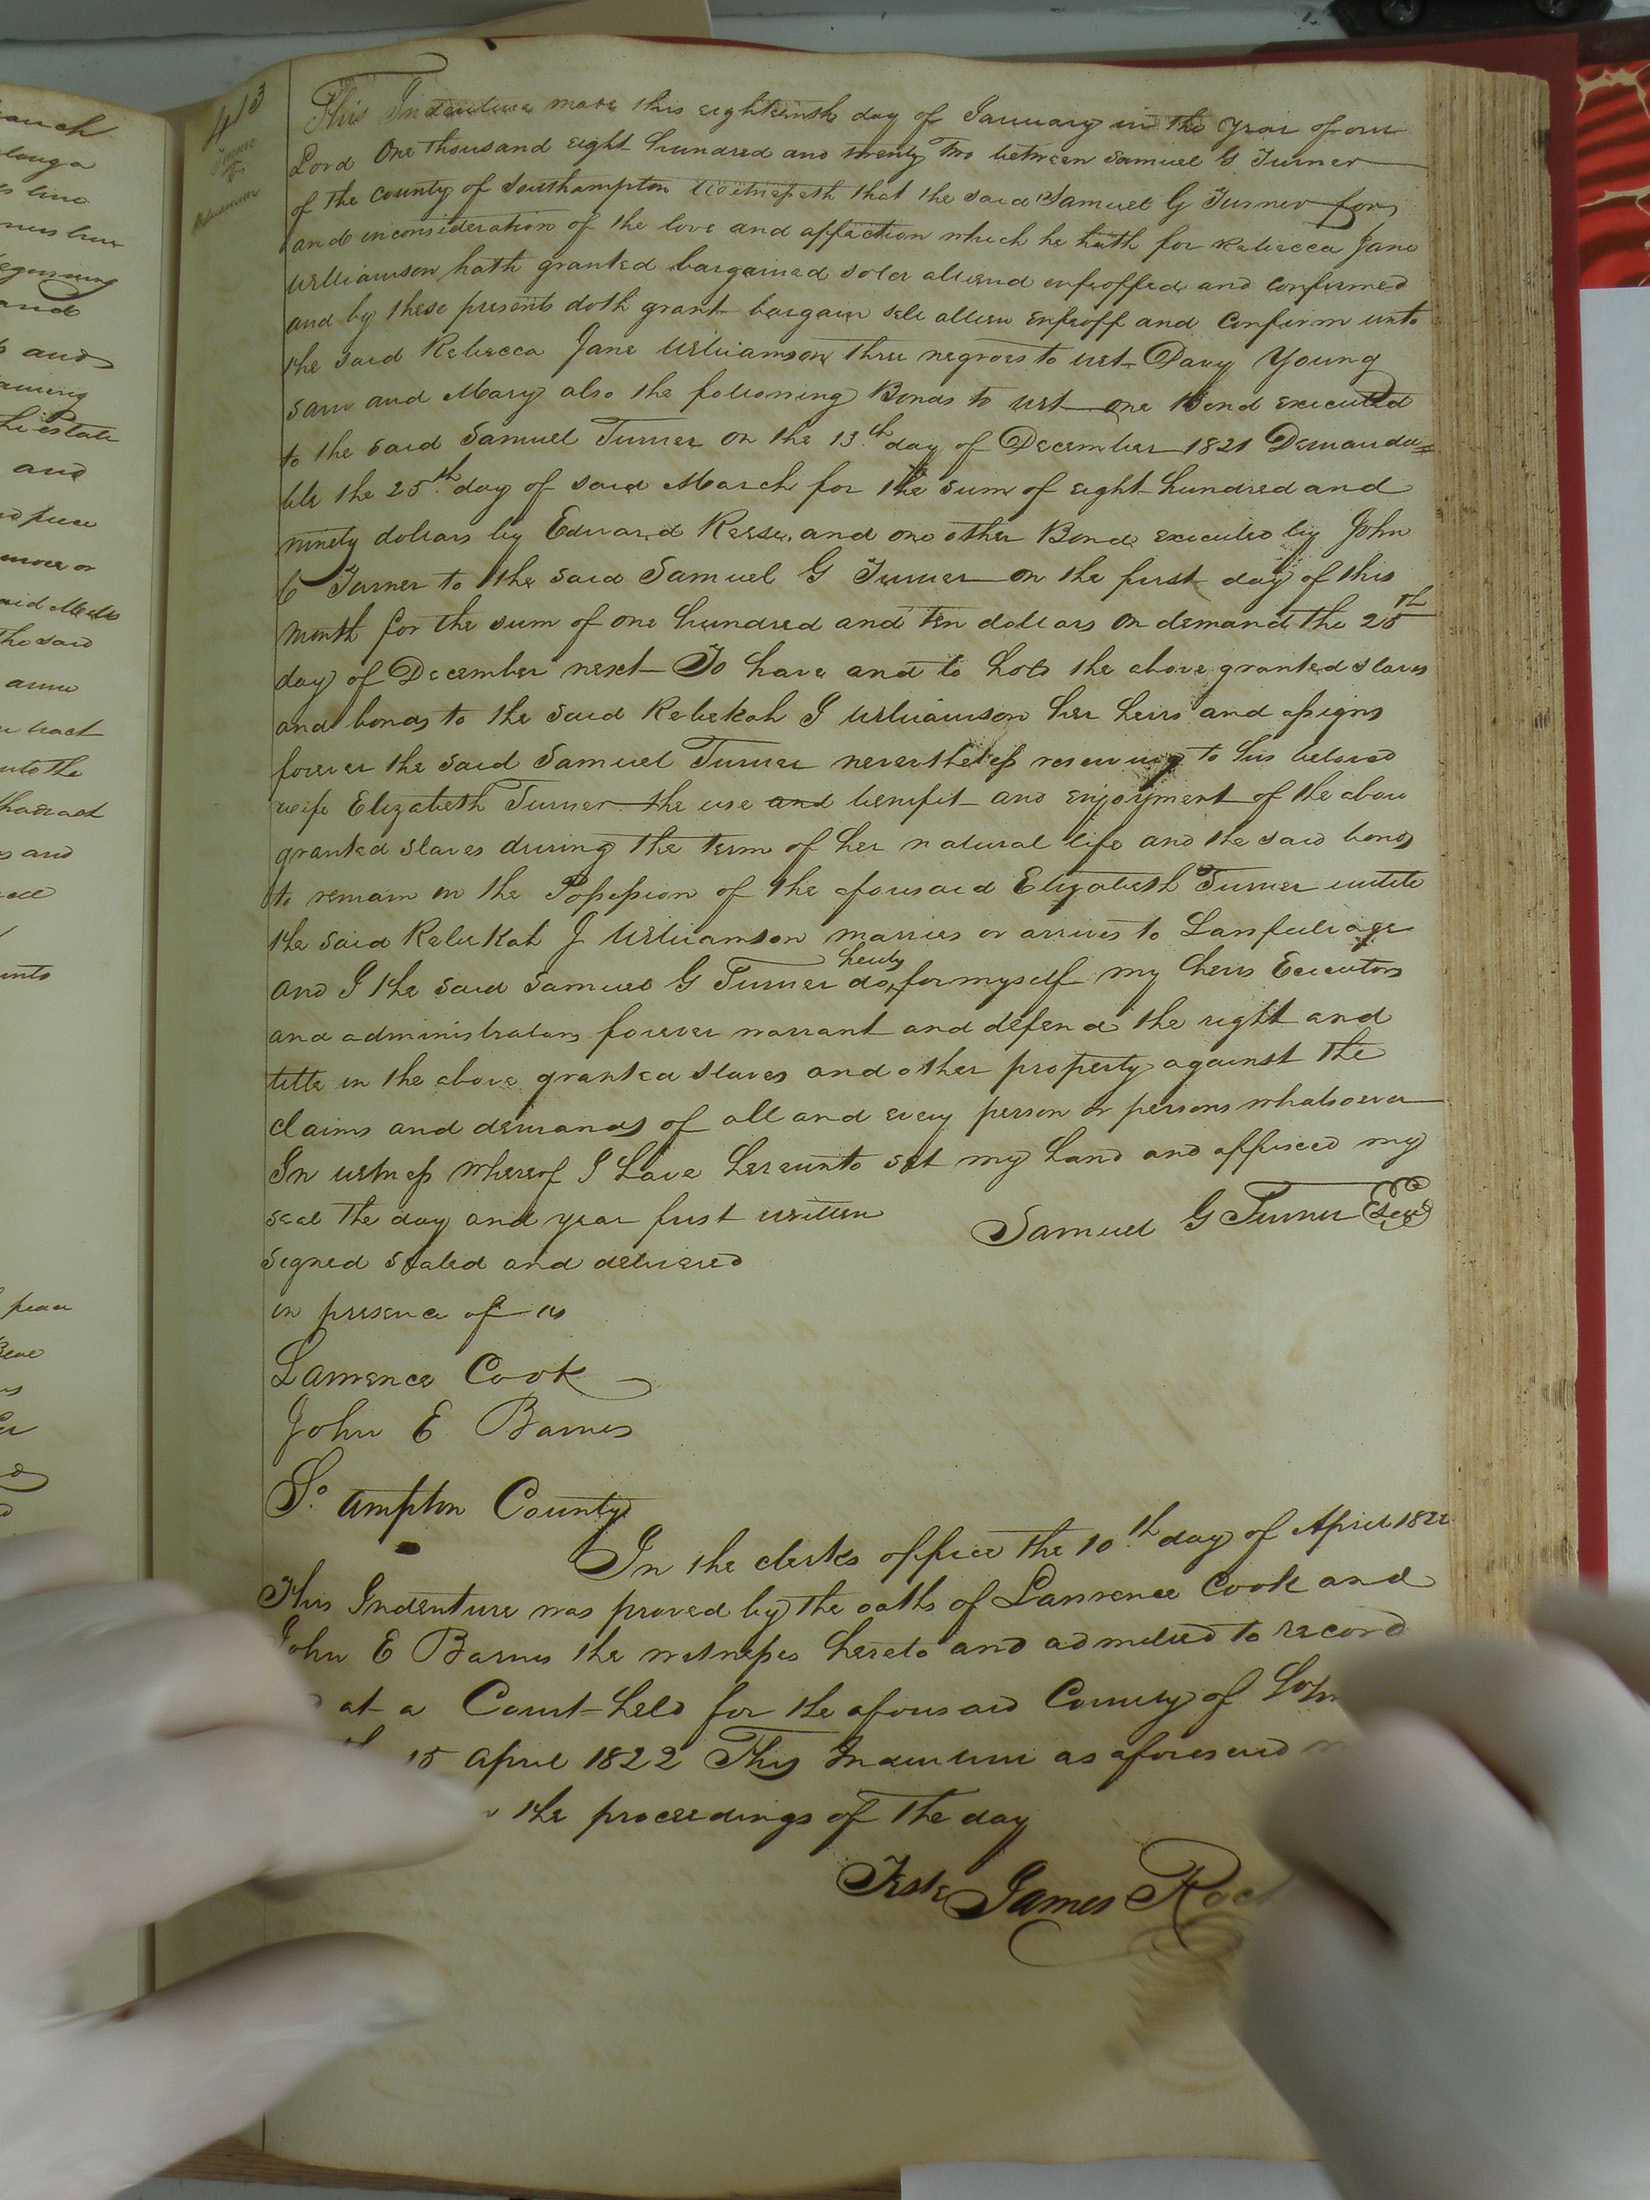 413
Turner
to
Williamson
This Indenture made this eighteenth day of January in the year of our
Lord One thousand eight hundred and twenty two between Samuel G Turner
of the County of Southampton Witnesseth that the said Samuel G Turner for
and inconsideration of the love and affection which he hath for Rebecca Jane
Williamson hath granted bargained sold aliend enfeoffed and confirmed
and by these presents doth grant bargain sell alien enfeoff and confirm unto
the said Rebecca Jane Williamson three negroes to wit Davy Young
Sam and Mary also the following Bonds to wit one Bond executed
to the said Samuel Turner on the 13th day of December 1821 Demanda=
ble the 25th day of said March for the sum of eight hundred and
ninety dollars by Edward Reese, and one other Bond executed by John
C Turner to the said Samuel G Turner on the first day of this
month for the sum of one hundred and ten dollars on demand the 25th
day of December next To have and to hold the above granted slaves
and bonds to the said Rebekah J Williamson her heirs and assigns
forever the said Samuel Turner nevertheless reserving to his beloved
wife Elizabeth Turner the use and benifit and enjoyment of the above
granted slaves during the term of her natural life and the said bonds
to remain in the Possession of the aforesaid Elizabeth Turner untill
the said Rebekah J Williamson marries or arrives to Lawfull age
and I the said Samuel G Turner do hereby for myself my heirs Executors
and administrators forever warrant and defend the right and
title in the above granted slaves and other property against the
claims and demands of all and every person or persons whatsoever
In witness whereof I have hereunto set my hand and affixed my
seal the day and year first written
Samuel G Turner Seal
Signed sealed and delivered
in presence of us
Lawrence Cook
John E Barnes
So. ampton County
In the clerks office the 10th day of April 1822
This Indenture was proved by the oaths of Lawrence Cook and
John E Barnes the witnesses hereto and admitted to record
at a Court held for the aforesaid County of
15 April 1822 This Indenture as aforesaid
the proceedings of the day
Teste James Roc